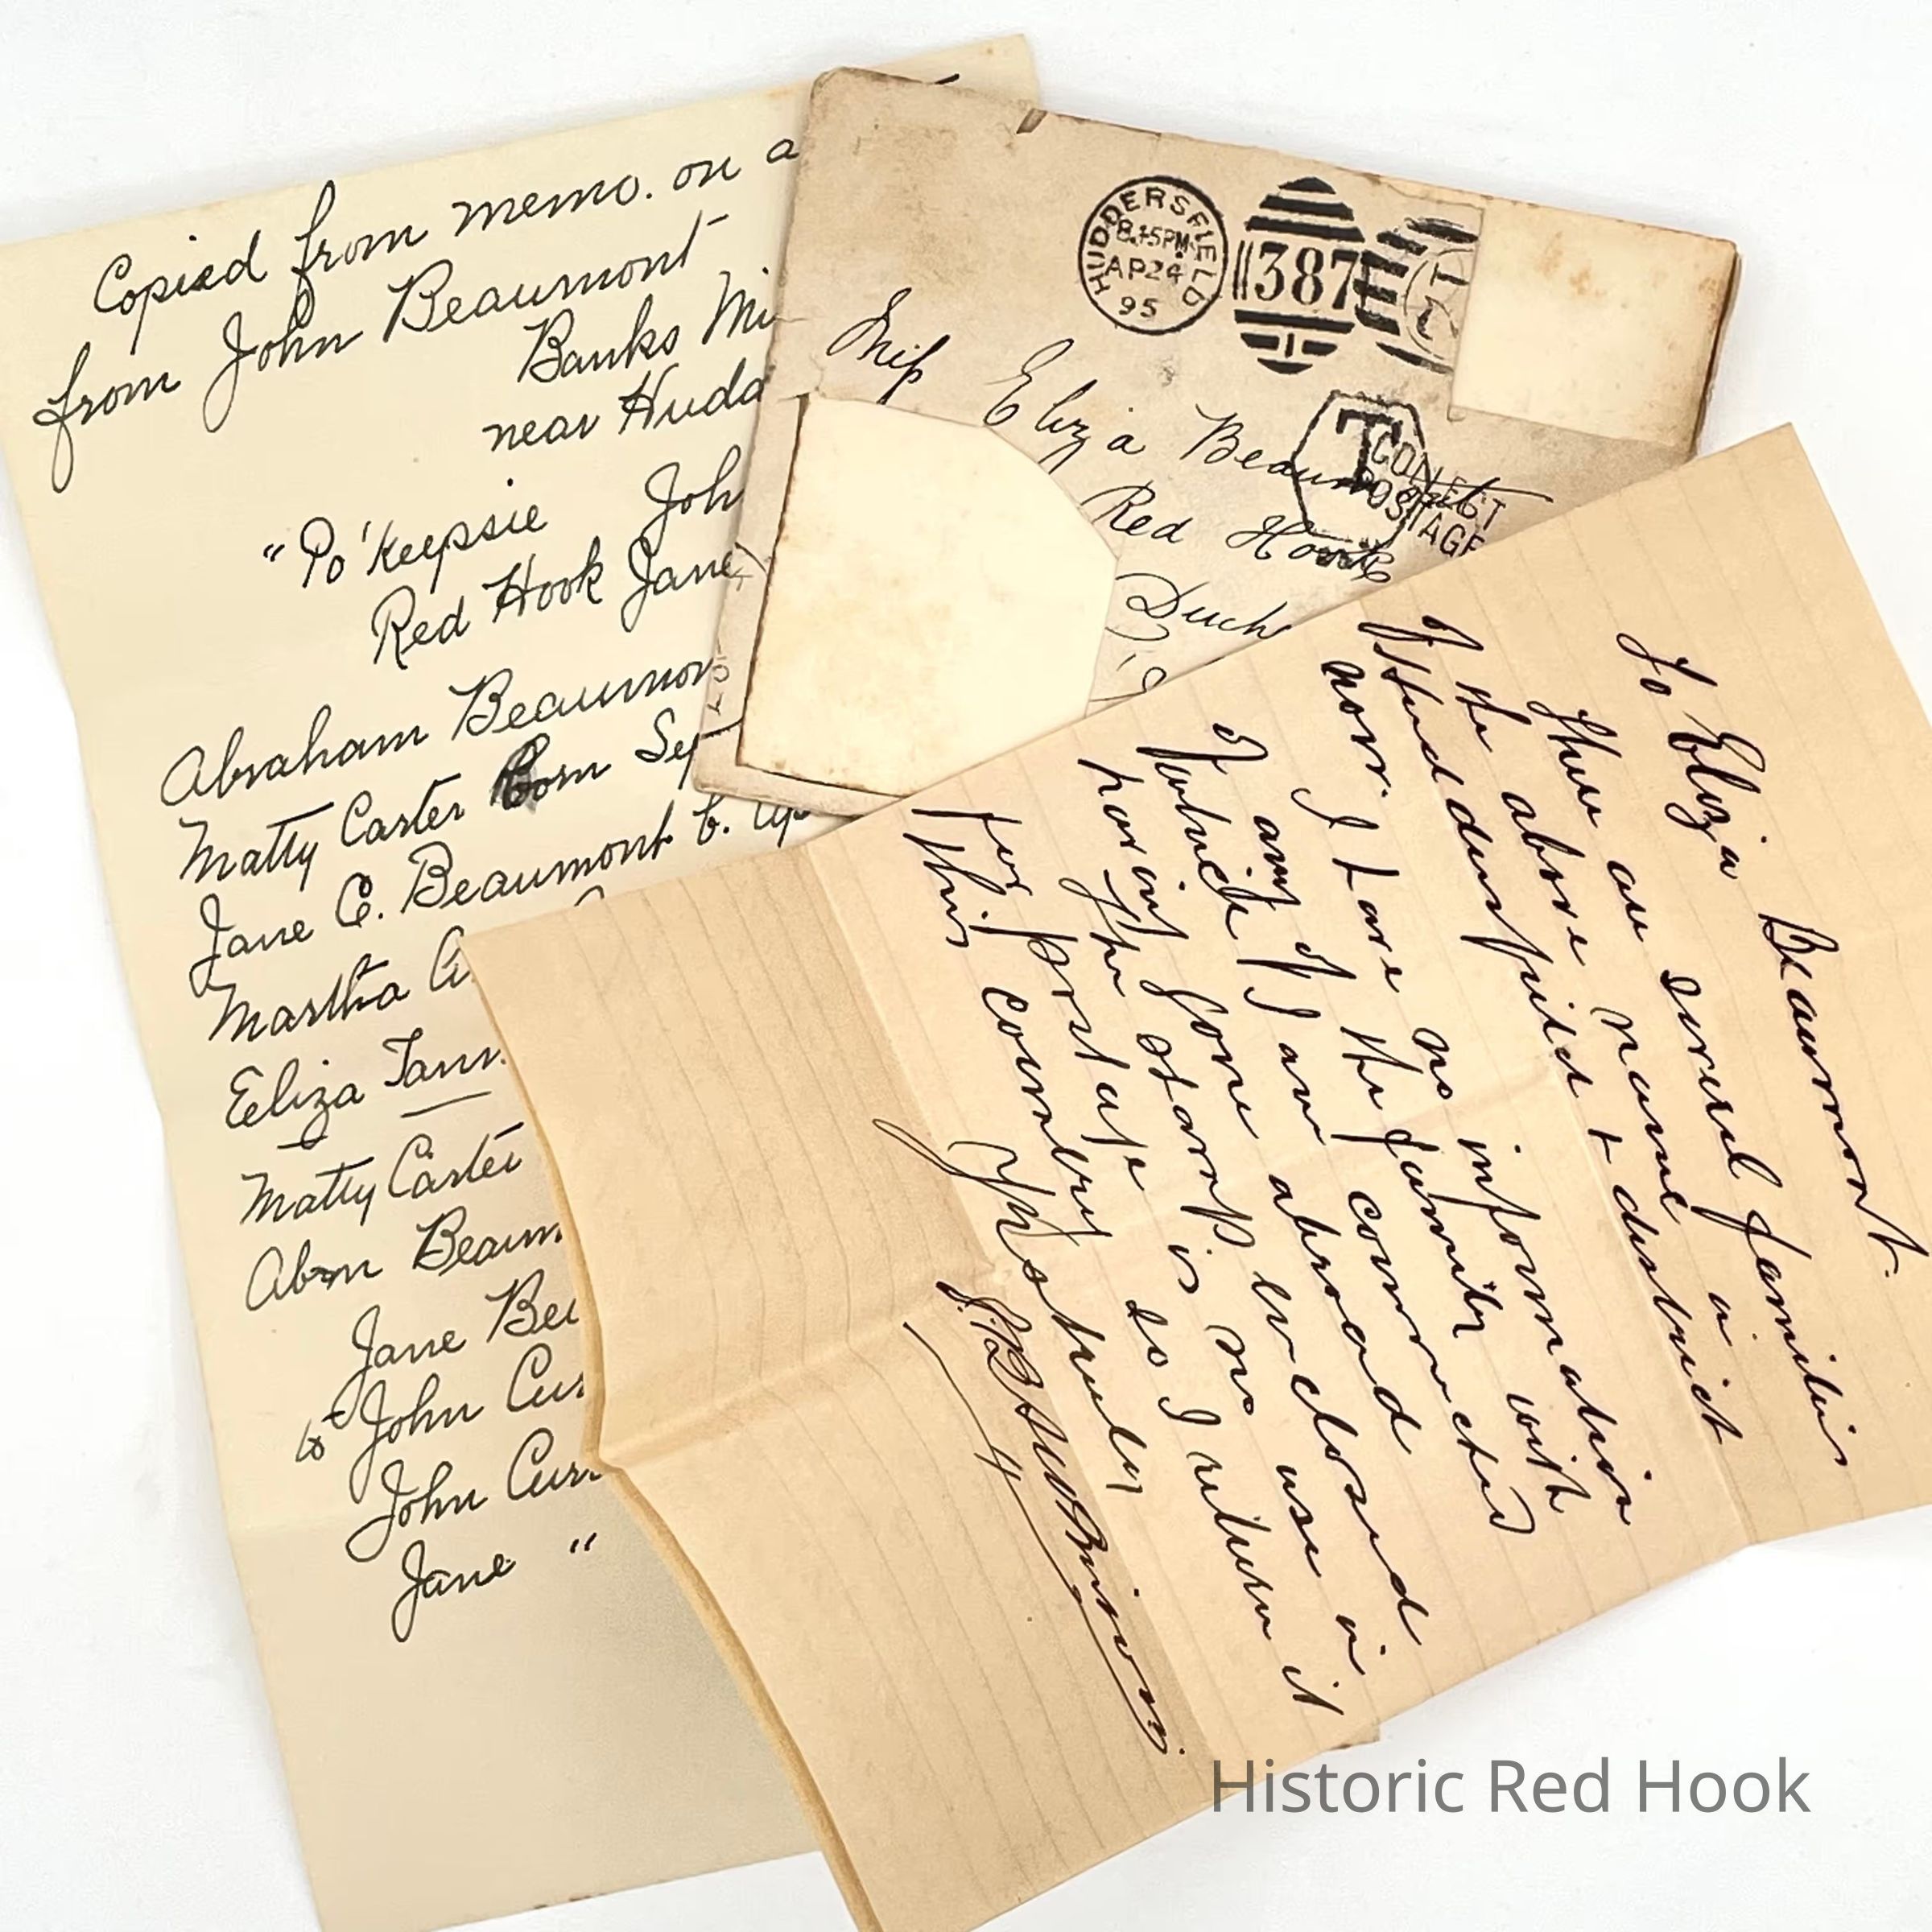 Copied from memo. on a
from John Beaumont
Banks Mi
near Hudd
"Po'Keepsie Joh
Red Hook Jane
Abraham Beaumon
Matty Carter Born Sep
Jane C. Beaumont b.
Martha
Eliza Tann
Matty Carter
Abrm Beaum
Jane Bea
to John Cur
John Curr
Jane "
HUDDERSFIELD
8.45PM
AP24
95
387
T
COLLECT
POSTAGE
Miss Eliza Beaumont
Red Hook
Duch
To Eliza Beaumont.
There are several families
of the above name in
Huddersfield & district
nor. I have no information
of the family with
any of I am connected
which I am abroad
having gone enclosed
The stamp is no use in it
for postage so I return it
this country
Yrs truly
Historic Red Hook